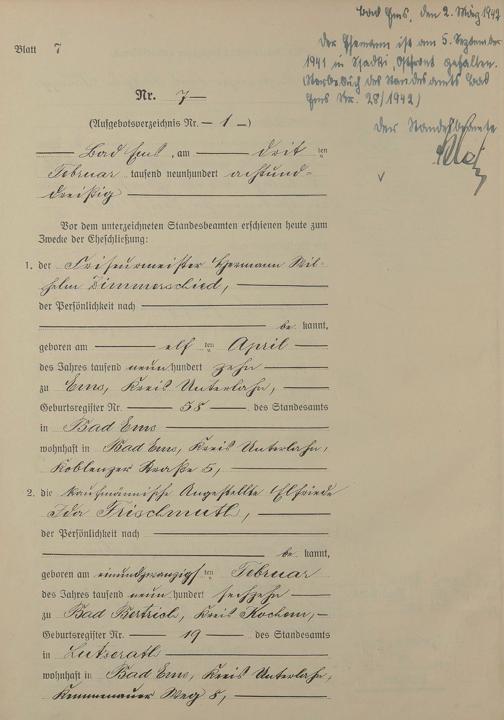 Blatt 7
Bad Ems, den 2. März 1942
Der Ehemann ist am 5. September
1941 in Sjadki, Ostfront gefallen.
Sterbebuch des Standesamts Bad
Ems Nr. 28/1942)
Der Standesbeamte
Nr. 7
(Aufgebotsverzeichnis Nr. 1)
Bad Ems, am drit ten
Februar tausend neunhundert achtund-
dreißig
Vor dem unterzeichneten Standesbeamten erschienen heute zum
Zwecke der Eheschließung:
1. der Friseurmeister Hermann Wil-
helm Zimmerschied,
der Persönlichkeit nach
be kannt,
geboren am elf ten April
des Jahres tausend neun hundert zehn
zu Ems, Kreis Unterlahn,
Geburtsregister Nr. 58 des Standesamts
in Bad Ems
wohnhaft in Bad Ems, Kreis Unterlahn,
Koblenzer Straße 5,
2. die kaufmännische Angestellte Elfriede
Ida Frischmuth,
der Persönlichkeit nach
be kannt,
geboren am einundzwanzigs ten Februar
des Jahres tausend neun hundert sechzehn
zu Bad Bertrich, Kreis Kochem,
Geburtsregister Nr. 19 des Standesamts
in Lutzerath
wohnhaft in Bad Ems, Kreis Unterlahn,
Kemmenauer Weg 8,